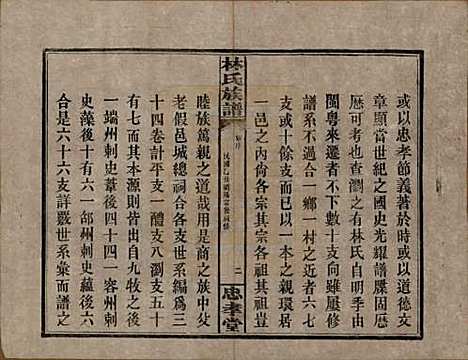 或以忠孝節義著於時或以道德文
章顯當世紀之國史光耀譜牒固厯
厯可考也查瀏之有林氏自明季由
閩粵來遷者不下數十支向雖屢修
譜系不過合一鄉一村之近者六七
支或十餘支而已以一本之親環居
一色之內俗各宗其宗各祖其祖于
林氏族譜
序
二
忠孝堂
睦族篤親之道哉用是商之族中父
老假邑城總祠合各支世系編為三
十四卷計平支一醴支八瀏支五十
有七而其本源則皆出自九牧之後
一端州刺史葦後四十四一容州刺
史藻後十有六一邵州刺史蘊後六
合是六十六支詳敘世系彙而譜之